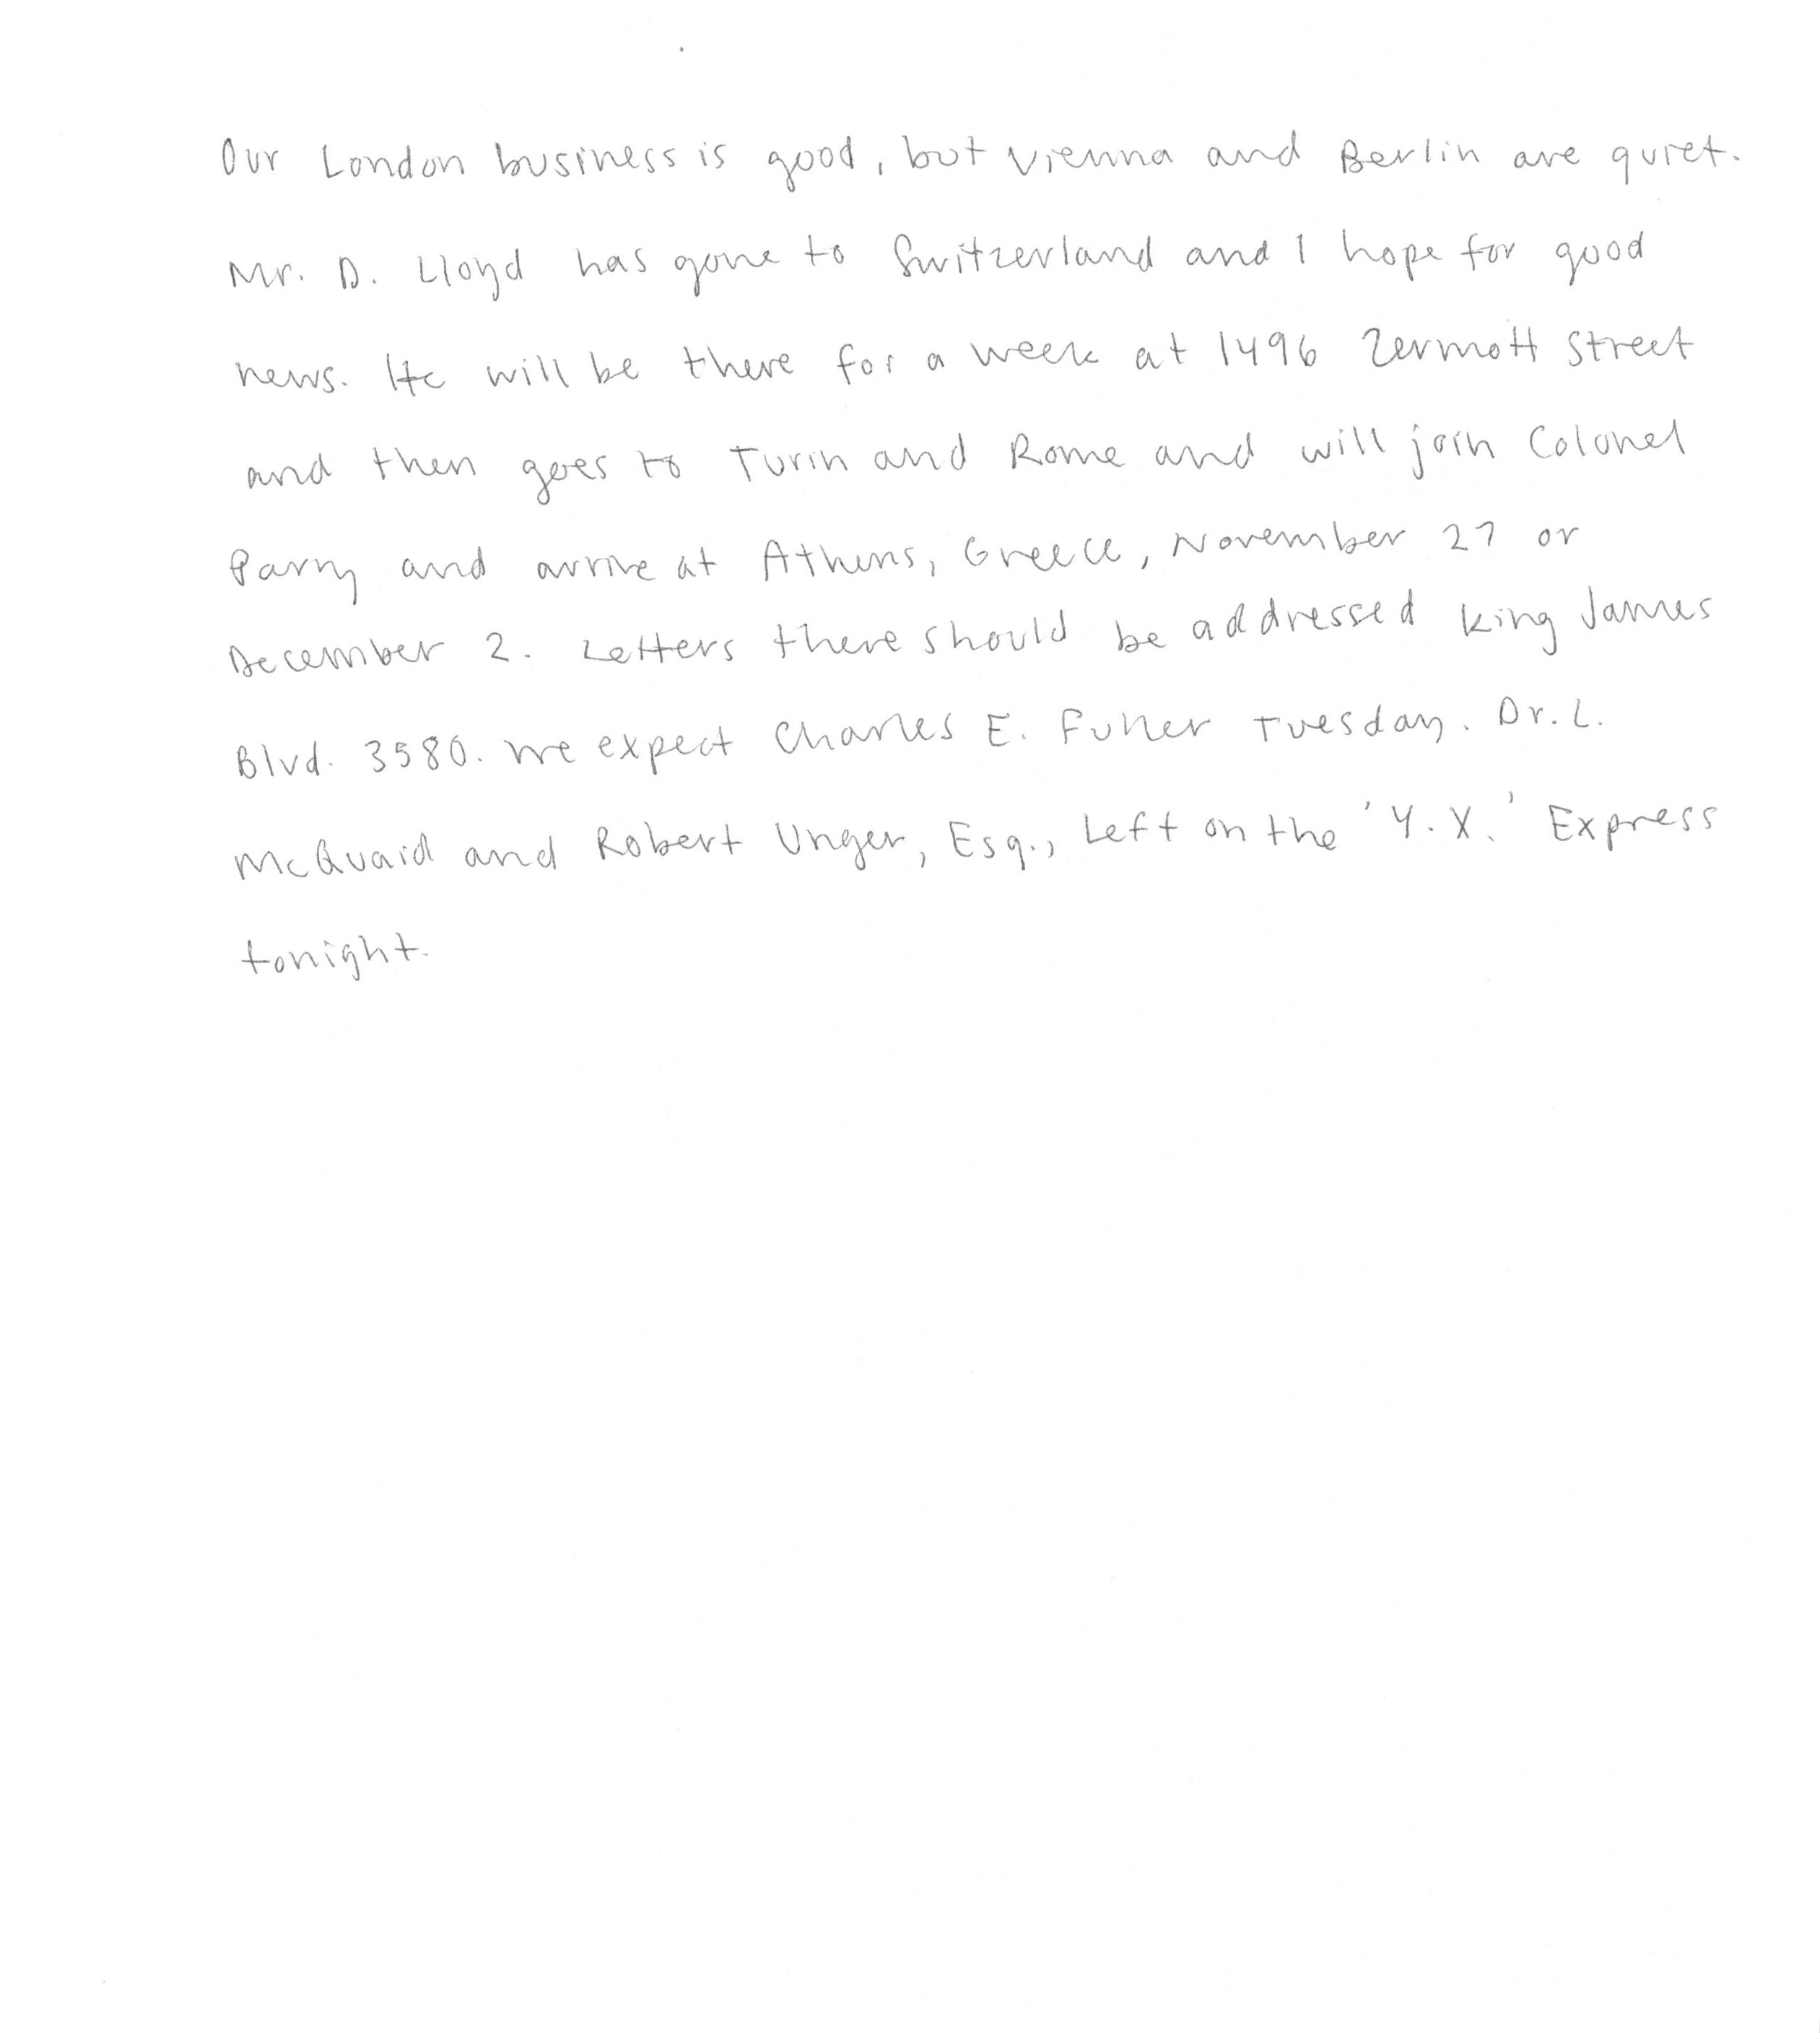 Our London business is good, but Vienna and Berlin are quiet.
Mr. D. Lloyd has gone to Switzerland and I hope for good
news. He will be there for a week at 1496 Zermott Street
and then goes to Turin and Rome and will join Colonel
Parry and arrive at Athens, Greece, November 27 or
December 2. Letters there should be addressed King James
Blvd. 3580. We expect Charles E. Fuller Tuesday. Dr. L.
McQuaid and Robert Unger, Esq., Left on the 'Y.X.' Express
tonight.